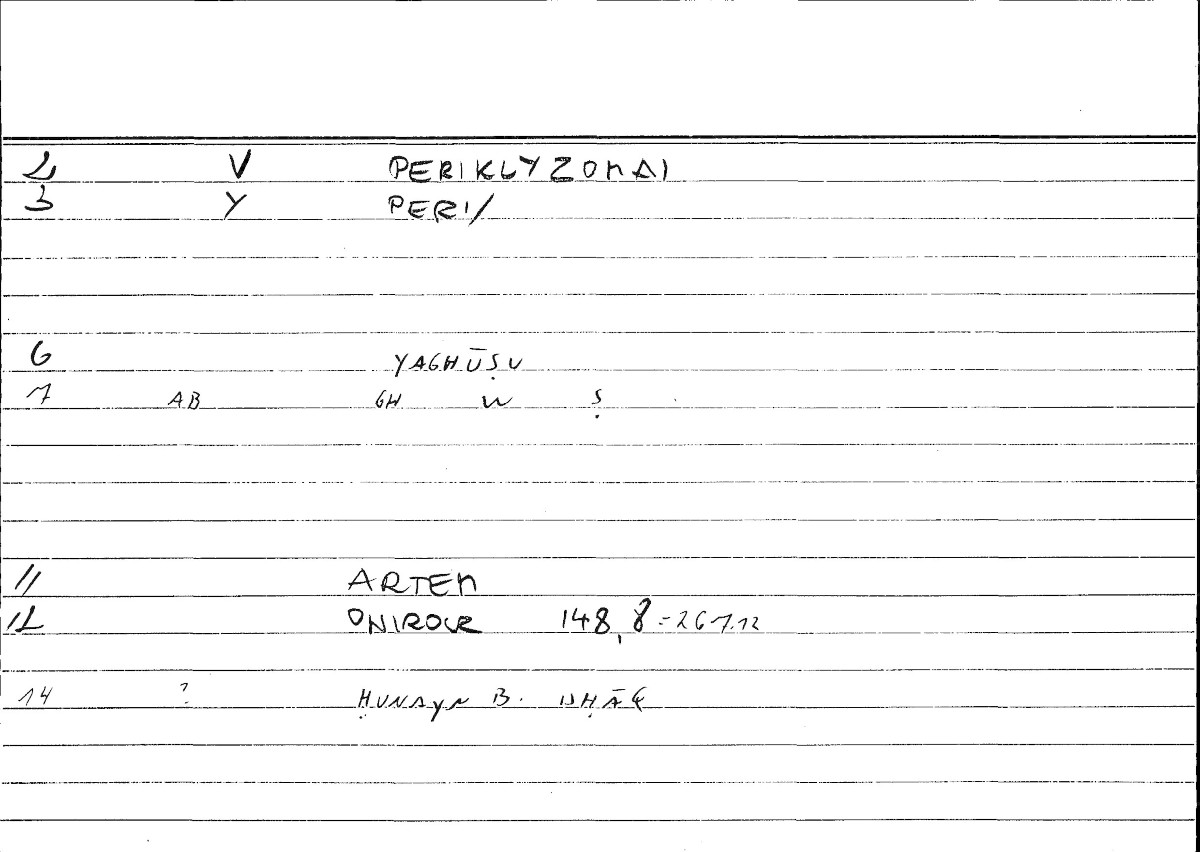 2 V PERIKLYZOMAI
3 Y PERI/
6 YAGHŪṢU
7 AB GH W Ṣ
11 ARTEM
12 ONIROCR 148,8 = 267.12
14 ? ḤUNAYN B. ISḤĀQ